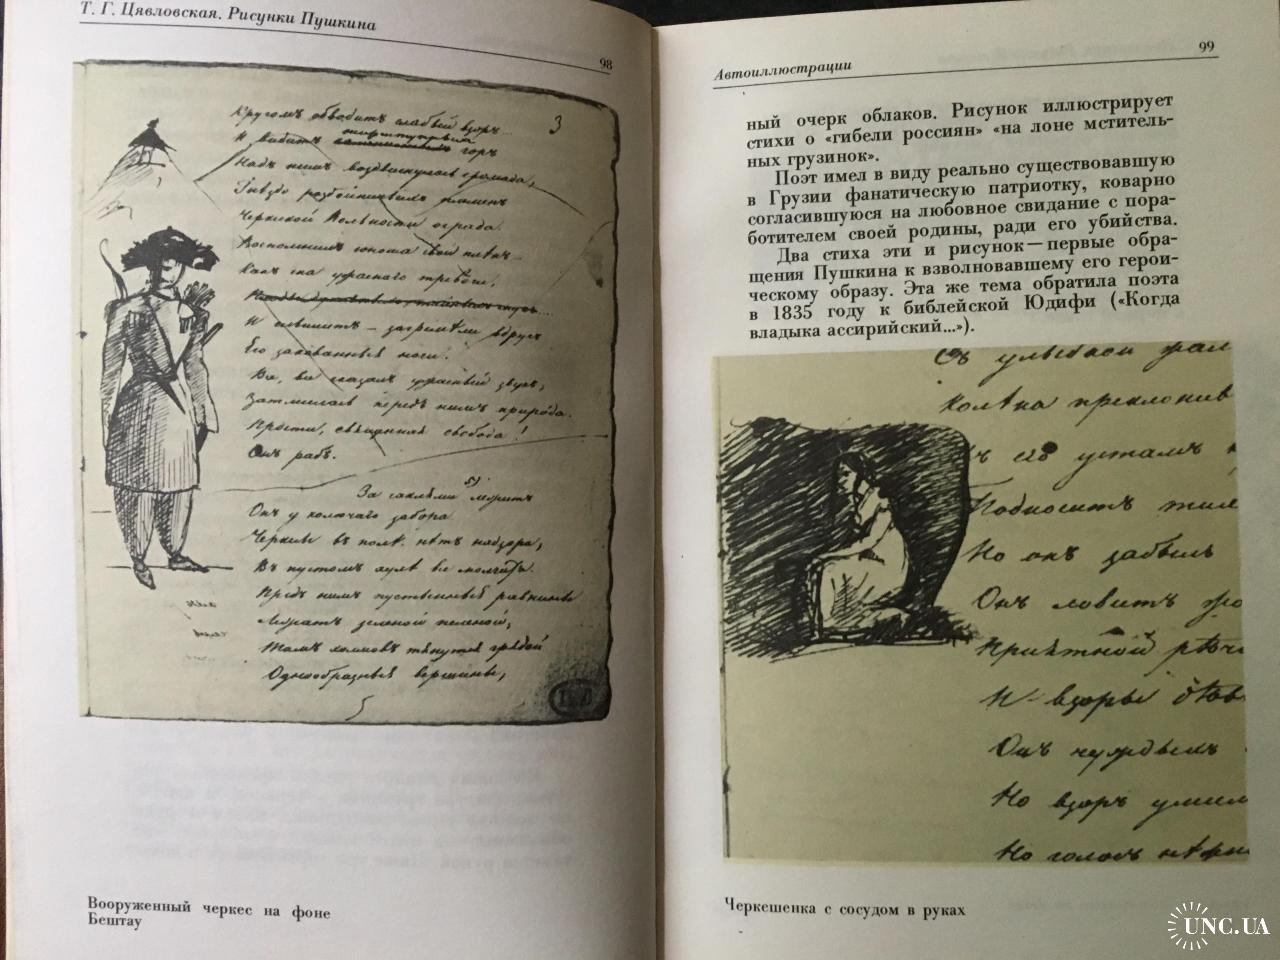 Т. Г. Цявловская. Рисунки Пушкина
98
3
Кругомъ обводитъ слабый взоръ...
И видитъ: неприступныхъ горъ
Надъ нимъ воздвигнулась громада,
Гнѣздо разбойничьихъ племенъ
Черкеской Вольности ограда.
Воспомнилъ юноша свой плѣнъ
Какъ сна ужаснаго тревоги,
И слышитъ — загремѣли вдругъ
Его закованныя ноги.
Все, все сказалъ ужасный звукъ,
Затмилась передъ нимъ природа.
Прости, священная свобода!
Онъ рабъ.
За саклями лежитъ
Онъ у колючаго забора
Черкесы въ полѣ, нѣтъ надзора,
Въ пустомъ аулѣ все молчитъ.
Предъ нимъ пустынныя равнины
Лежатъ зеленой пеленой,
Тамъ холмовъ тянутся грядой
Однообразныя вершины,
Вооруженный черкес на фоне
Бештау
Автоиллюстрации
99
ный очерк облаков. Рисунок иллюстрирует
стихи о «гибели россиян» «на лоне мститель-
ных грузинок».
Поэт имел в виду реально существовавшую
в Грузии фанатическую патриотку, коварно
согласившуюся на любовное свидание с пора-
ботителем своей родины, ради его убийства.
Два стиха эти и рисунок — первые обра-
щения Пушкина к взволновавшему его герои-
ческому образу. Эта же тема обратила поэта
в 1835 году к библейской Юдифи («Когда
владыка ассирийский...»).
Съ улыбкой жал
Колѣна преклонив
его устамъ
Подноситъ
Но онъ забылъ
Онъ ловитъ
Приятной рѣч
И взоры
Онъ чуждыхъ
Но взоръ умил
Но голосъ нѣжн
Черкешенка с сосудом в руках
UNC.UA